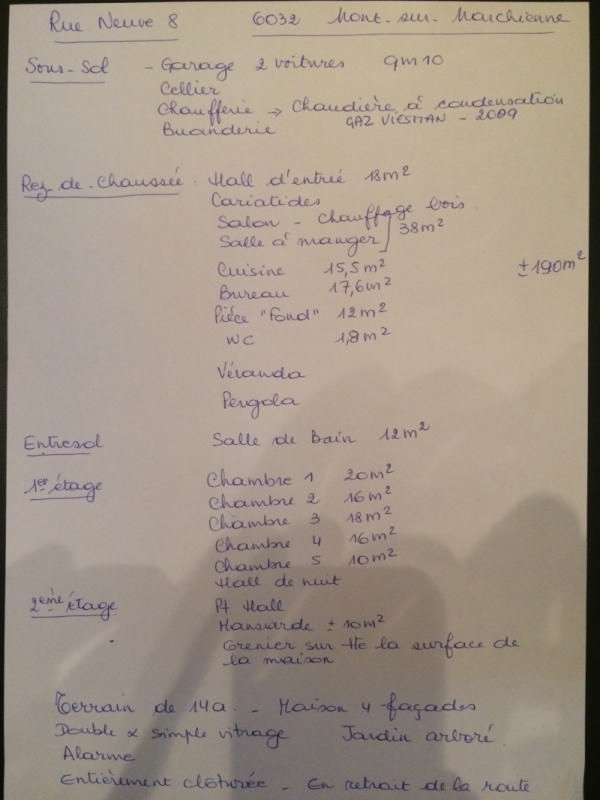 Rue Neuve 8 6032 Mont-sur-Marchienne
Sous-Sol - Garage 2 voitures 9m10
Cellier
Chaufferie → Chaudière à condensation
GAZ VIESMAN - 2009
Buanderie
Rez-de-Chaussée : Hall d'entrée 18m²
Cariatides
Salon - Chauffage bois
Salle à manger 38m²
Cuisine 15,5m² ±190m²
Bureau 17,6m²
Pièce "Fond" 12m²
WC 1,8m²
Véranda
Pergola
Entresol Salle de Bain 12m²
1er étage Chambre 1 20m²
Chambre 2 16m²
Chambre 3 18m²
Chambre 4 16m²
Chambre 5 10m²
Hall de nuit
2ème étage Pt Hall
Mansarde ± 10m²
Grenier sur tte la surface de
la maison
Terrain de 14a. - Maison 4 façades
Double & simple vitrage Jardin arboré
Alarme
Entièrement clôturée - En retrait de la route